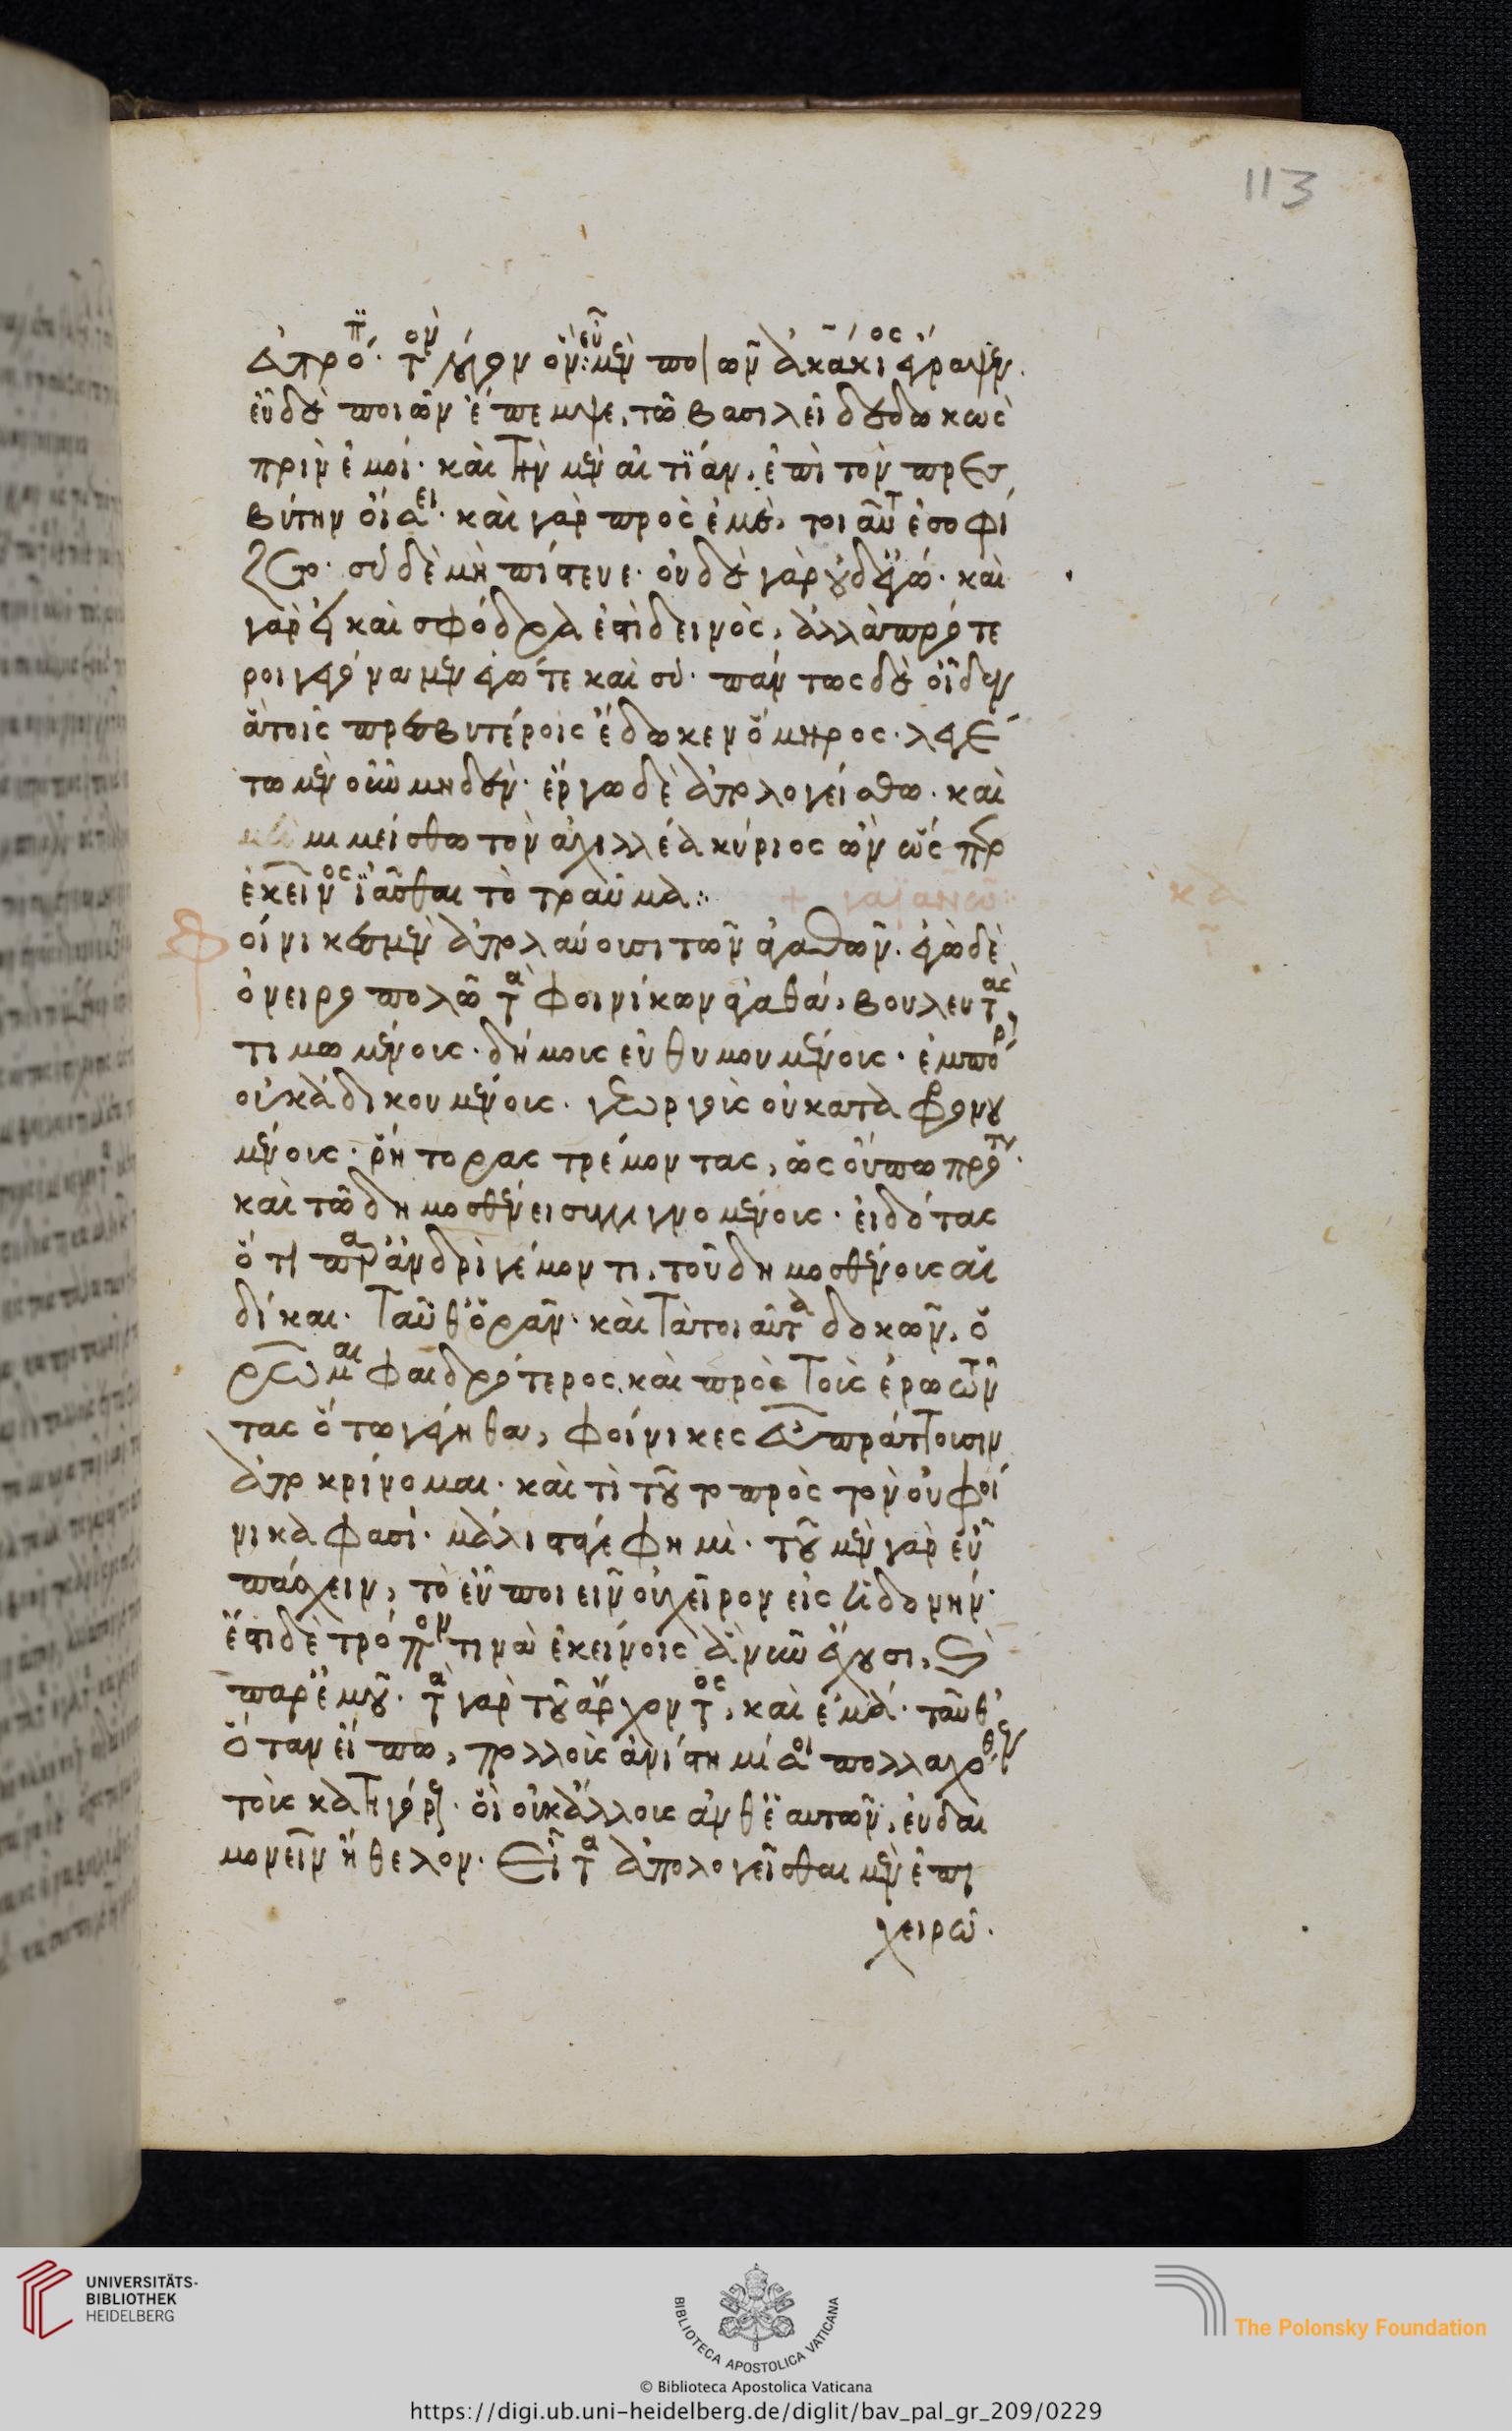 113
ἀπρό. τὸν λόγον ὃν εὖ μὲν ποιῶν ἀκάκιος ἔγραψεν.
εὖ δὲ ποιῶν ἔπεμψε, τῶ βασιλεῖ δέδωκὼς
πρὶν ἐμοί. καὶ τὴν μὲν αἰτίαν, ἐπὶ τὸν πρεσ
βύτην οἴσει. καὶ γὰρ πρὸς ἐμὲ, τοιαῦτ ἐσοφί
ζετο. σὺ δὲ μὴ πίστευε. οὐδὲ γὰρ οὐδ ἐγώ. καὶ
γὰρ εἰ καὶ σφόδρα ἐστὶ δεινὸς, ἀλλὰ πρότε
ροι γεγόναμεν ἐγώ τε καὶ σύ. πάντως δὲ οἶδεν
ἃ τοῖς πρεσβυτέροις ἔδωκεν ὅμηρος. λεγέ
τω μὲν οὖν μηδέν. ἔργω δὲ ἀπολογείσθω. καὶ
μιμείσθω τὸν ἀχιλλέα κύριος ὢν ὥσπερ
ἐκεῖνος ἰᾶσθαι τὸ τραῦμα:
+ γαϊανῶ: κδ
Φοίνικες μὲν ἀπολαύουσι τῶν ἀγαθῶν. ἐγὼ δὲ
ὀνειροπολῶ τὰ φοινίκων ἀγαθά, βουλευτὰς
τιμωμένους. δήμους εὐθυμουμένους. ἐμπόρ
οὐκ ἀδικουμένους. γεωργοὺς οὐ καταφρονου
μένους. ῥήτορας τρέμοντας, ὡς οὔπω πρότ.
καὶ τῶ δημοσθένει συγγινομένους. εἰδότας
ὅτι παρ ἀνδρὶ γέμοντι, τοῦ δημοσθένους αἱ
δίκαι. ταῦθ ὁρᾶν. καὶ τὰ τοιαῦτα δοκῶν, ὁ
ρῶμαι φαιδρότερος. καὶ πρὸς τοὺς ἐρωτῶν
τας ὅτω γέγηθα, φοίνικες εὖ πράττουσιν
ἀποκρίνομαι. καὶ τί τοῦτο πρὸς τὸν οὐ φοί
νικα φασί. μάλιστα γέ φημι. τοῦ μὲν γὰρ εὖ
πάσχειν, τὸ εὖ ποιεῖν οὐ χεῖρον εἰς ἡδονήν.
ἔστι δὲ τρόπον τινὰ ἐκείνοις ἃ νῦν ἔχουσι, καὶ
παρ ἐμοῦ. τὰ γὰρ τοῦ ἄρχοντος, καὶ ἐμά. ταῦθ
ὅταν εἴπω, πολλοὺς ἀνίστημί σοι πολλαχόθεν
τοὺς κατηγόρους. οἳ οὐκ ἄλλους ἀνθ ἑαυτῶν, εὐδαι
μονεῖν ἤθελον. εἶτα ἀπολογεῖσθαι μὲν ἐπι
χειρῶ.
UNIVERSITÄTS-
BIBLIOTHEK
HEIDELBERG
BIBLIOTECA APOSTOLICA VATICANA
© Biblioteca Apostolica Vaticana
The Polonsky Foundation
https://digi.ub.uni-heidelberg.de/diglit/bav_pal_gr_209/0229